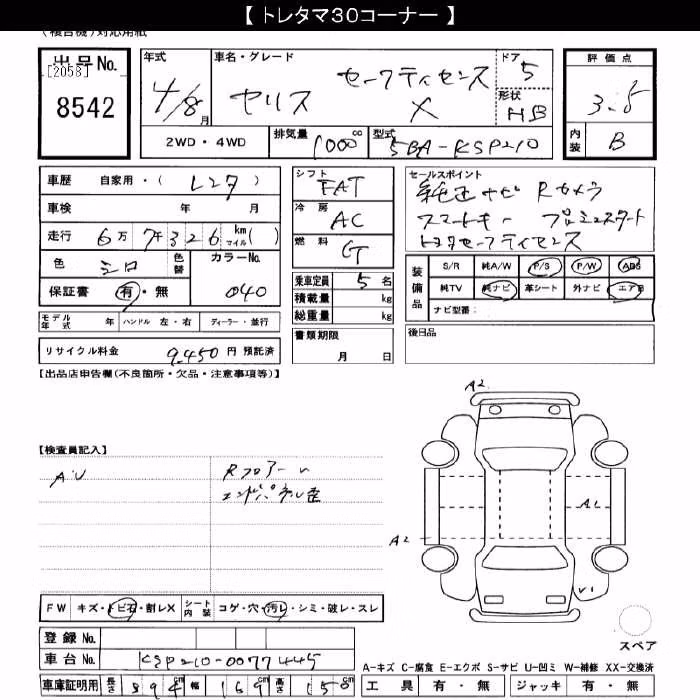 【 トレタマ30コーナー 】
(複合機)対応用紙
出品No. [2058] 8542
年式 4/8月
車名・グレード ヤリス セーフティセンス X
ドア 5
形状 HB
評価点 3.5
内装 B
2WD・4WD 排気量 1000cc 型式 5BA-KSP210
車歴 自家用・( レンタ )
車検 年 月
走行 6万7千326 km マイル( )
色 シロ 色替 カラーNo. 040
保証書 有・無
シフト FAT
冷房 AC
燃料 G
セールスポイント
純正ナビ Rカメラ
スマートキー プッシュスタート
トヨタセーフティセンス
乗車定員 5名
積載量 kg
総重量 kg
装備品 S/R 純A/W P/S P/W ABS
純TV 純ナビ 革シート 外ナビ エアB
ナビ型番:
モデル年式 年 ハンドル 左・右 ディーラー・並行
書類期限 月 日
後日品
リサイクル料金 9,450円 預託済
【出品店申告欄(不良箇所・欠品・注意事項等)】
A2
【検査員記入】
Rフロアー
エンドパネル歪
A1
A2
V1
FW キズ・トビ石・割レX シート内装 コゲ・穴・汚レ・シミ・破レ・スレ
スペア
登録No.
車台No. KSP210-0077445
A-キズ C-腐食 E-エクボ S-サビ U-凹ミ W-補修 XX-交換済
車庫証明用 長さ 394cm 幅 169cm 高さ 150cm
工具 有・無 ジャッキ 有・無